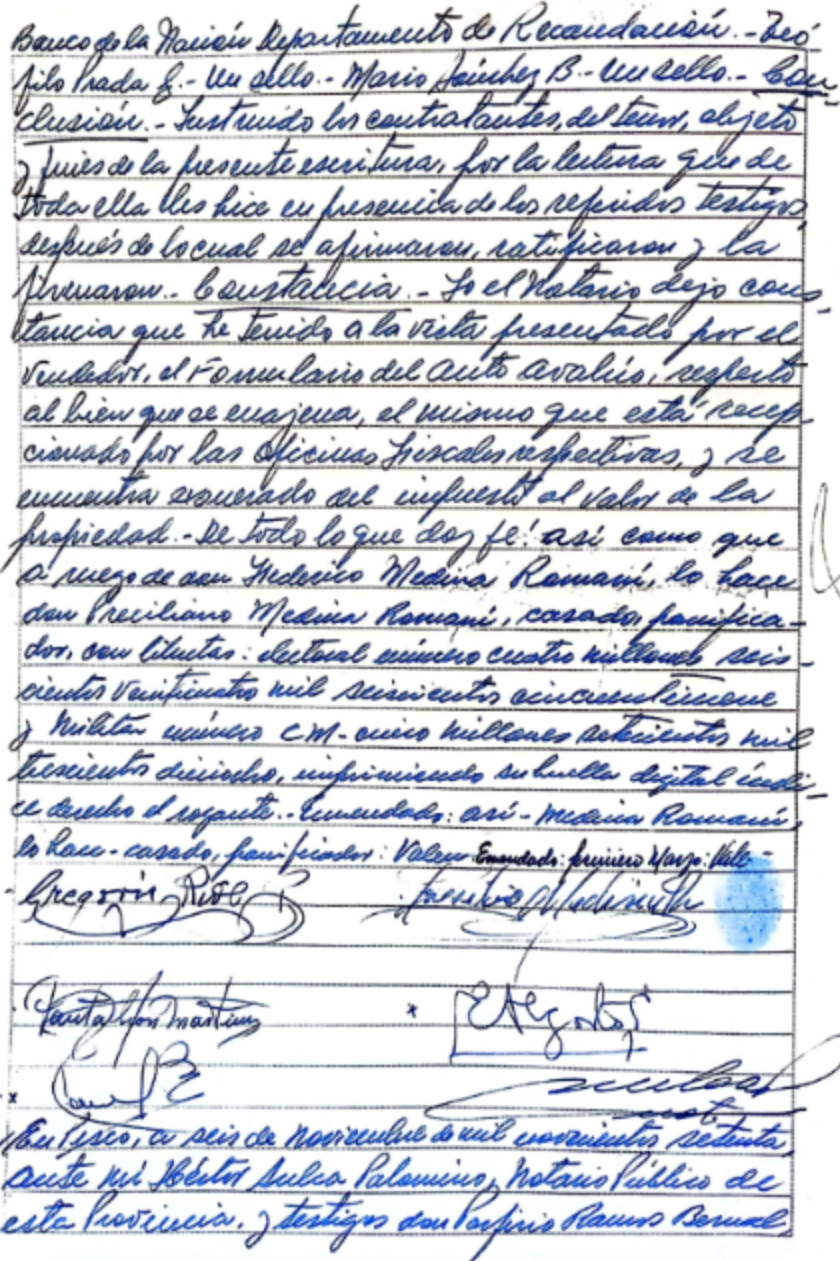 Banco de la Nación Departamento de Recaudación.- Teó-
filo Prada G.- Un sello.- Mario Sánchez B.- Un sello.- Con
clusión.- Instruidos los contratantes, del tenor, objeto
y fines de la presente escritura, por la lectura que de
toda ella les hice en presencia de los referidos testigos
después de lo cual se afirmaron, ratificaron y la
firmaron.- Constancia.- Yo el Notario dejo cons-
tancia que he tenido a la vista presentado por el
vendedor, el Formulario del auto avalúo, respecto
al bien que se enajena, el mismo que está recep
cionado por las Oficinas Fiscales respectivas, y se
encuentra exonerado del impuesto al valor de la
propiedad.- De todo lo que doy fé: así como que
a ruego de don Federico Medina Romaní, lo hace
don Preciliano Medina Romaní, casado, panifica-
dor, con libretas: electoral número cuatro millones seis-
cientos veinticuatro mil seiscientos cincuentinueve
y Militar número CM- cinco millones setecientos mil
trescientos dieciocho, imprimiendo su huella digital índi-
ce derecho el rogante.- Enmendado: así - Medina Romaní,
lo hace - casado, panificador: Valen. Enmendado: primero Marzo: Vale-
Gregorio
Pantaleón Martínez
x
x
En Pisco, a seis de Noviembre de mil novecientos setenta
ante mí Héctor Sulca Palomino, Notario Público de
esta Provincia, y testigos don Porfirio Ramos Bernal,